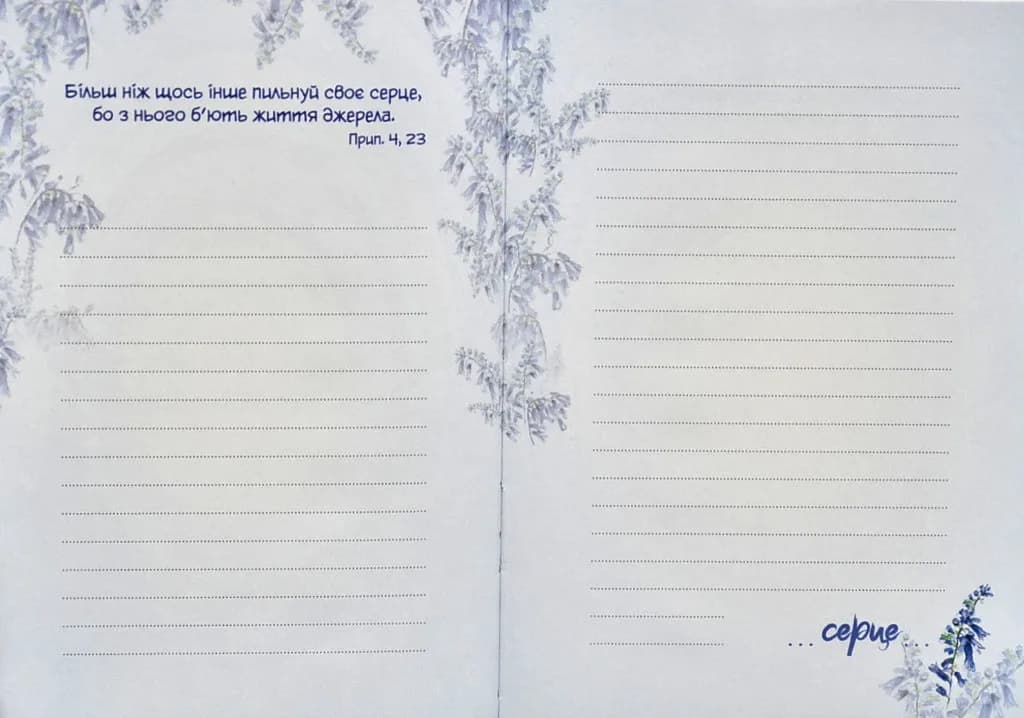 Більш ніж щось інше пильнуй своє серце,
бо з нього б'ють життя джерела.
Прип. 4, 23
... серце ...